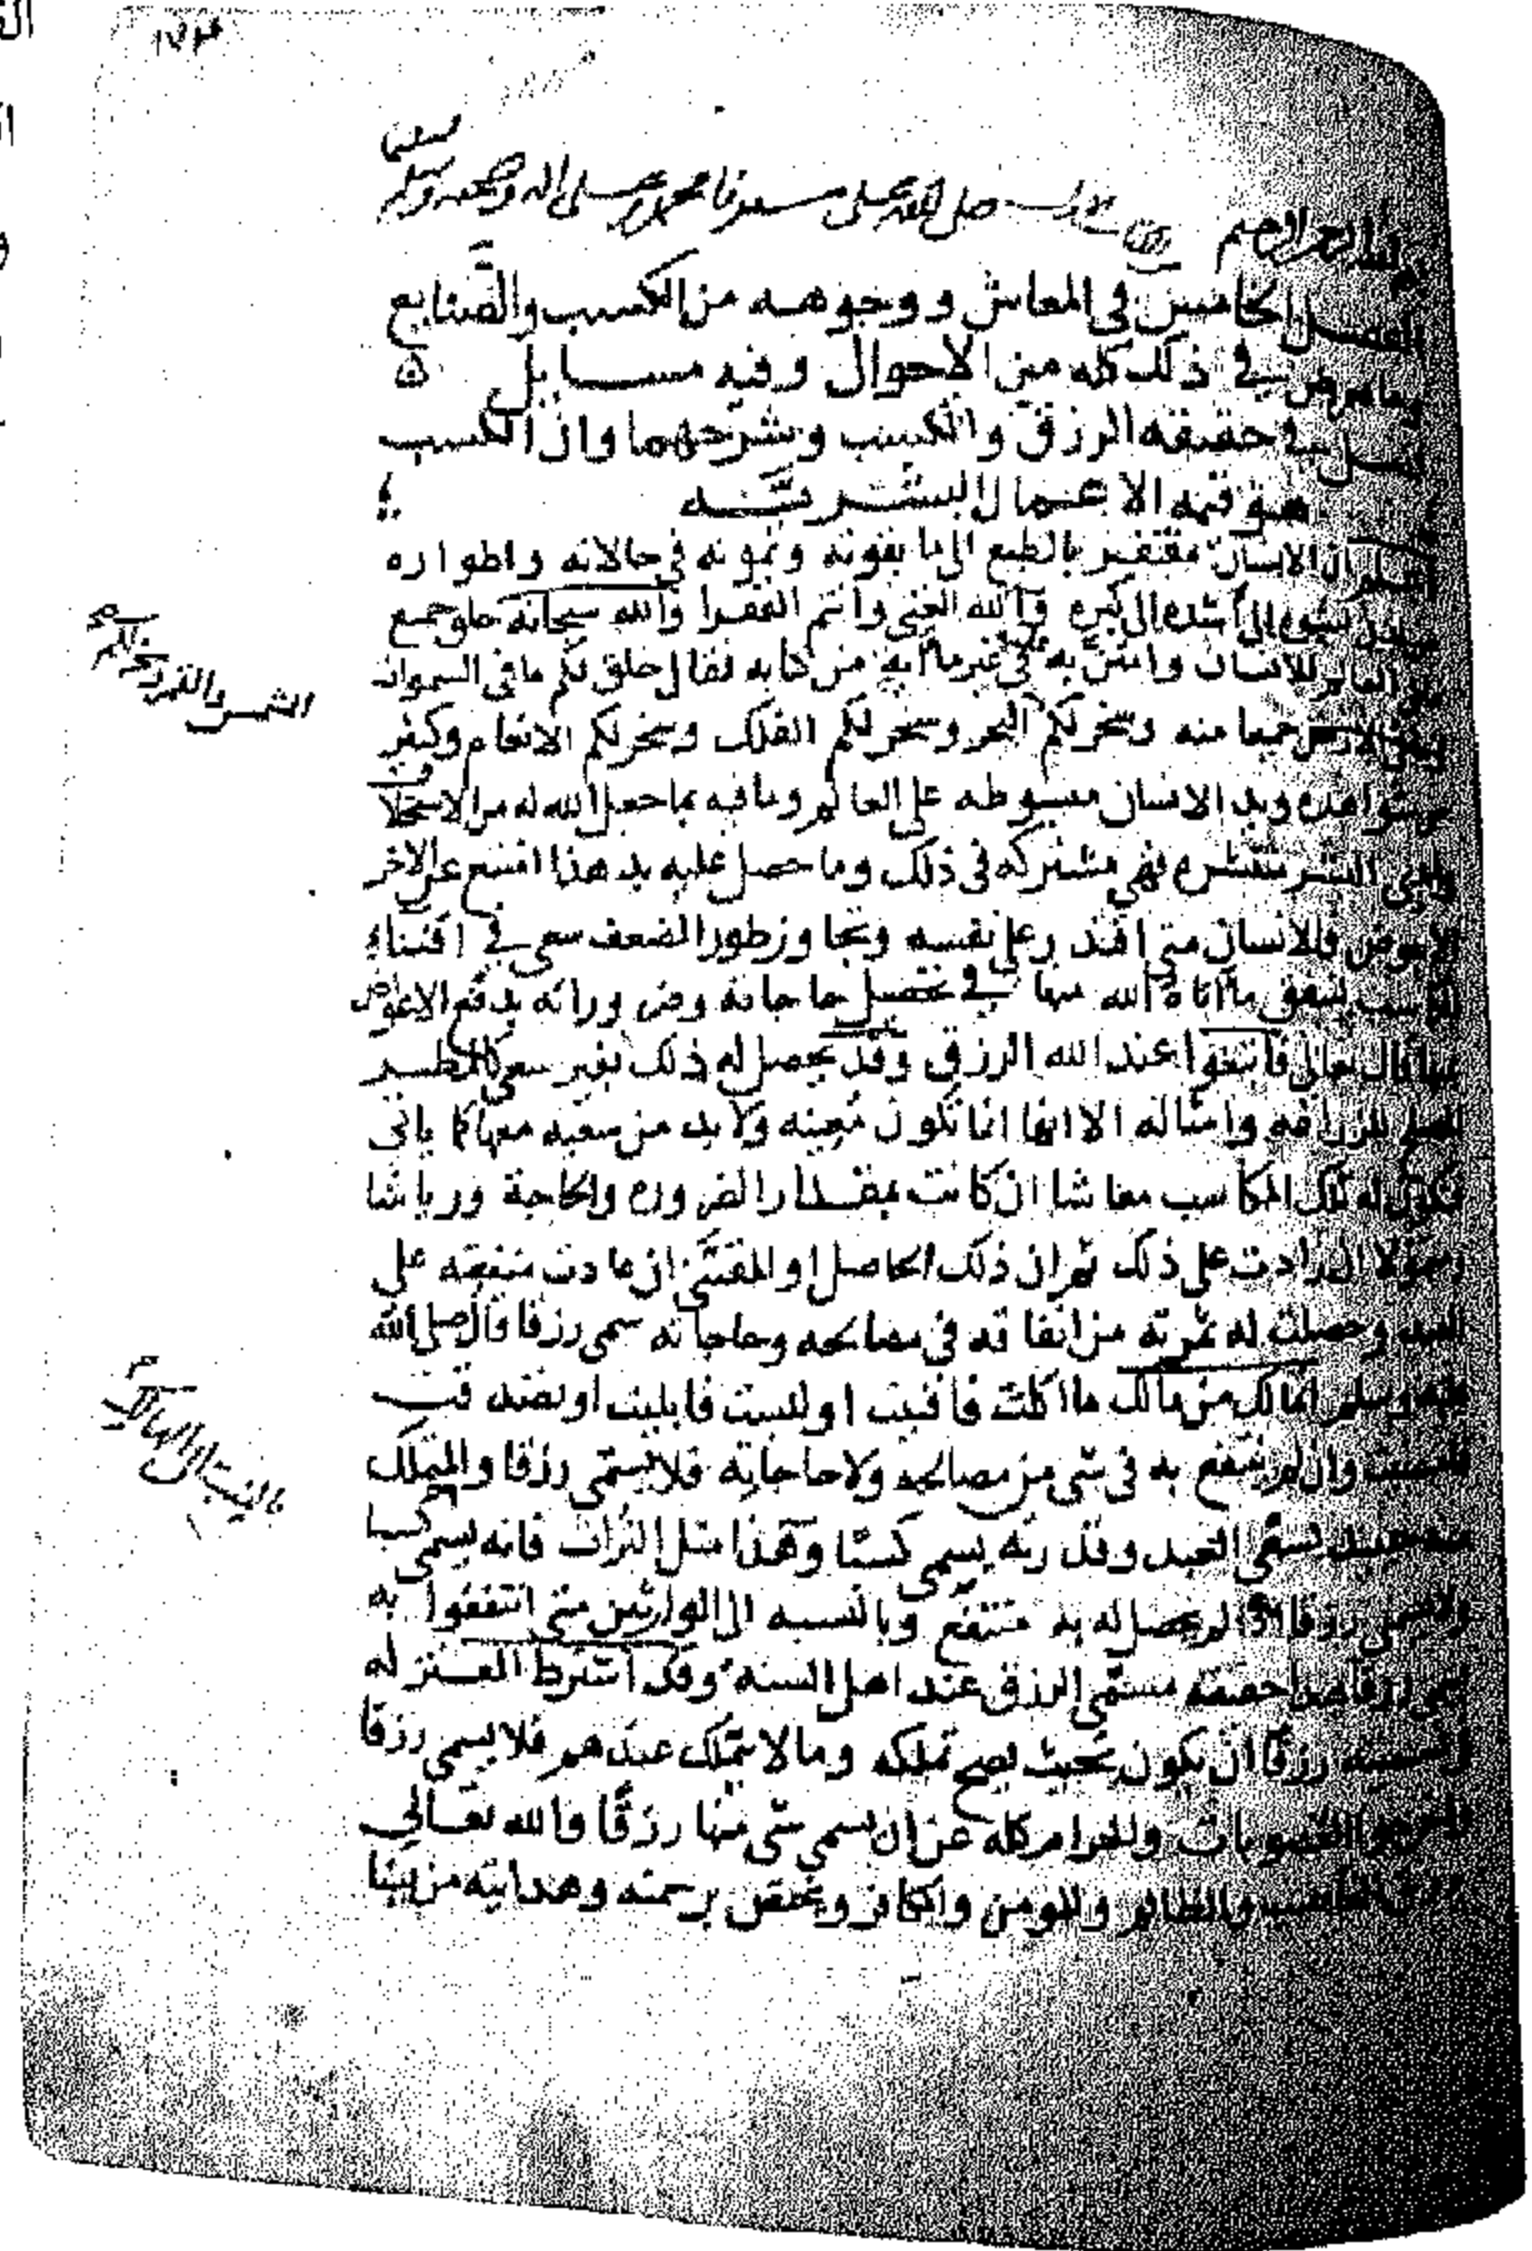 تسليما
بسم الله الرحمن الرحيم صلى الله على سيدنا محمد وعلى اله وصحبه وسلم
الفصل الخامس في المعاش ووجوهه من الكسب والصنايع
وما يعرض في ذلك كله من الاحوال وفيه مسايل
فصل في حقيقه الرزق والكسب وشرحهما وان الكسب
هو قيمه الاعمال البشريه
اعلم ان الانسان مفتقر بالطبع الى ما يقوته ويمونه في حالاته واطواره
من لدن نشوه الى اشده الى كبره والله الغني وانتم الفقرا والله سبحانه خلق جميع
ما في العالم للانسان وامتن به عليه في غير ما ايه من كتابه فقال خلق لكم ما في السموات
وما في الارض جميعا منه وسخر لكم البحر وسخر لكم الفلك وسخر لكم الانعام وكثير
الشمس والقمر وسخر لكم صح
من شواهده ويد الانسان مبسوطه على العالم وما فيه بما جعل الله له من الاستخلاف
وايدي البشر منتشره فهي مشتركه في ذلك وما حصل عليه يد هذا امتنع عن الاخر
الا بعوض فالانسان متى اقتدر على نفسه وتجاوز طور الضعف سعى في اقتناء
المكاسب لينفق ما اتاه الله منها في تحصيل حاجاته وضروراته بدفع الاعواض
عنها قال تعالى فابتغوا عند الله الرزق وقد يحصل له ذلك بغير سعي كالمطر
المصلح للزراعه وامثاله الا انها انما تكون معينه ولا بد من سعيه معها كما ياتي
فتكون له تلك المكاسب معاشا ان كانت بمقدار الضروره والحاجة ورياشا
ومتمولا ان زادت على ذلك ثم ان ذلك الحاصل او المقتنى ان عادت منفعته على
العبد وحصلت له ثمرته من انفاقه في مصالحه وحاجاته سمي رزقا قال صلى الله
عليه وسلم انما لك من مالك ما اكلت فافنيت او لبست فابليت او تصدقت
فامضيت وان لم ينتفع به في شي من مصالحه ولا حاجاته فلا يسمى رزقا والمتملك
منه حينئذ بسعي العبد وقدرته يسمى كسبا وهذا مثل التراث فانه يسمى كسبا
بالنسبة الى الهالك
ولا يسمى رزقا اذ لم يحصل له به منتفع وبالنسبه الى الوارثين متى انتفعوا به
سمي رزقا هذا حقيقه مسمى الرزق عند اهل السنه وقد اشترط المعتزله
في تسميته رزقا ان يكون بحيث يصح تملكه وما لا يتملك عندهم فلا يسمى رزقا
واخرجوا الغصوبات والحرام كله عن ان يسمى شي منها رزقا والله تعالى
يرزق الغاصب والظالم والمومن والكافر ويختص برحمته وهدايته من يشا